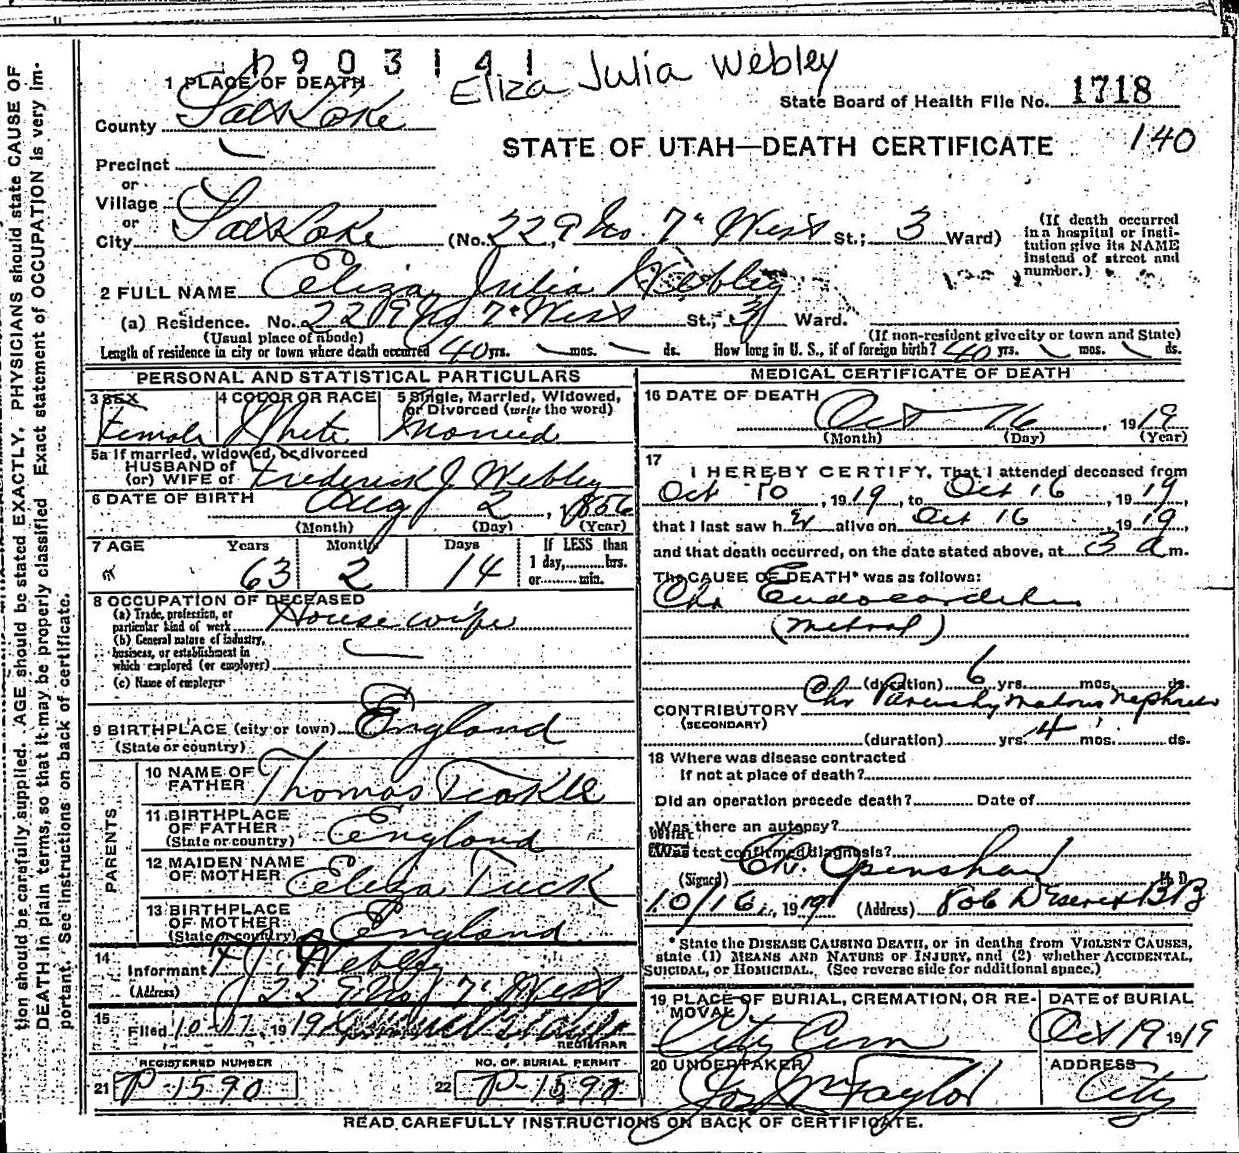 1903141
Eliza Julia Webley
1 PLACE OF DEATH
State Board of Health File No. 1718
County Salt Lake
STATE OF UTAH—DEATH CERTIFICATE 140
Precinct
or
Village
or
City Salt Lake (No. 229 No. 7" West St.; 3 Ward)
(If death occurred in a hospital or institution give its NAME instead of street and number.)
2 FULL NAME Eliza Julia Webley
(a) Residence. No. 229 No 7" West St.; 3 Ward.
(Usual place of abode) (If non-resident give city or town and State)
Length of residence in city or town where death occurred 40 yrs. mos. ds. How long in U. S., if of foreign birth? 40 yrs. mos. ds.
PERSONAL AND STATISTICAL PARTICULARS
3 SEX Female
4 COLOR OR RACE White
5 Single, Married, Widowed, or Divorced (write the word) Married
5a If married, widowed, or divorced
HUSBAND of
(or) WIFE of Frederick J. Webley
6 DATE OF BIRTH Aug 2, 1856
(Month) (Day) (Year)
7 AGE Years 63 Months 2 Days 14
If LESS than
1 day,........hrs.
or........min.
8 OCCUPATION OF DECEASED
(a) Trade, profession, or
particular kind of work Housewife
(b) General nature of industry,
business, or establishment in
which employed (or employer)
(c) Name of employer
9 BIRTHPLACE (city or town) England
(State or country)
PARENTS
10 NAME OF
FATHER Thomas Teakle
11 BIRTHPLACE
OF FATHER England
(State or country)
12 MAIDEN NAME
OF MOTHER Eliza Tuck
13 BIRTHPLACE
OF MOTHER England
(State or country)
14
Informant F. J. Webley
(Address) 229 No 7" West
15
Filed 10-17, 1919
REGISTRAR
REGISTERED NUMBER
21 P-1590
NO. OF BURIAL PERMIT
22 P-1590
MEDICAL CERTIFICATE OF DEATH
16 DATE OF DEATH
Oct 16, 1919
(Month) (Day) (Year)
17
I HEREBY CERTIFY, That I attended deceased from
Oct 10, 1919, to Oct 16, 1919,
that I last saw her alive on Oct 16, 1919,
and that death occurred, on the date stated above, at 3 a m.
The CAUSE OF DEATH* was as follows:
Chr Endocarditis
(Mitral)
(duration) 6 yrs. mos. ds.
CONTRIBUTORY Chr Parenchymatous Nephritis
(SECONDARY)
(duration) yrs. 4 mos. ds.
18 Where was disease contracted
if not at place of death?
Did an operation precede death? Date of
Was there an autopsy?
What test confirmed diagnosis?
(Signed) Openshaw M. D.
10/16, 1919 (Address) 806 Deseret B B
* State the DISEASE CAUSING DEATH, or in deaths from VIOLENT CAUSES,
state (1) MEANS AND NATURE OF INJURY, and (2) whether ACCIDENTAL,
SUICIDAL, or HOMICIDAL. (See reverse side for additional space.)
19 PLACE OF BURIAL, CREMATION, OR REMOVAL
City Cem
DATE of BURIAL
Oct 19 1919
20 UNDERTAKER
Jos Wm Taylor
ADDRESS
City
READ CAREFULLY INSTRUCTIONS ON BACK OF CERTIFICATE.
tion should be carefully supplied. AGE should be stated EXACTLY. PHYSICIANS should state CAUSE OF
DEATH in plain terms, so that it may be properly classified. Exact statement of OCCUPATION is very im-
portant. See instructions on back of certificate.